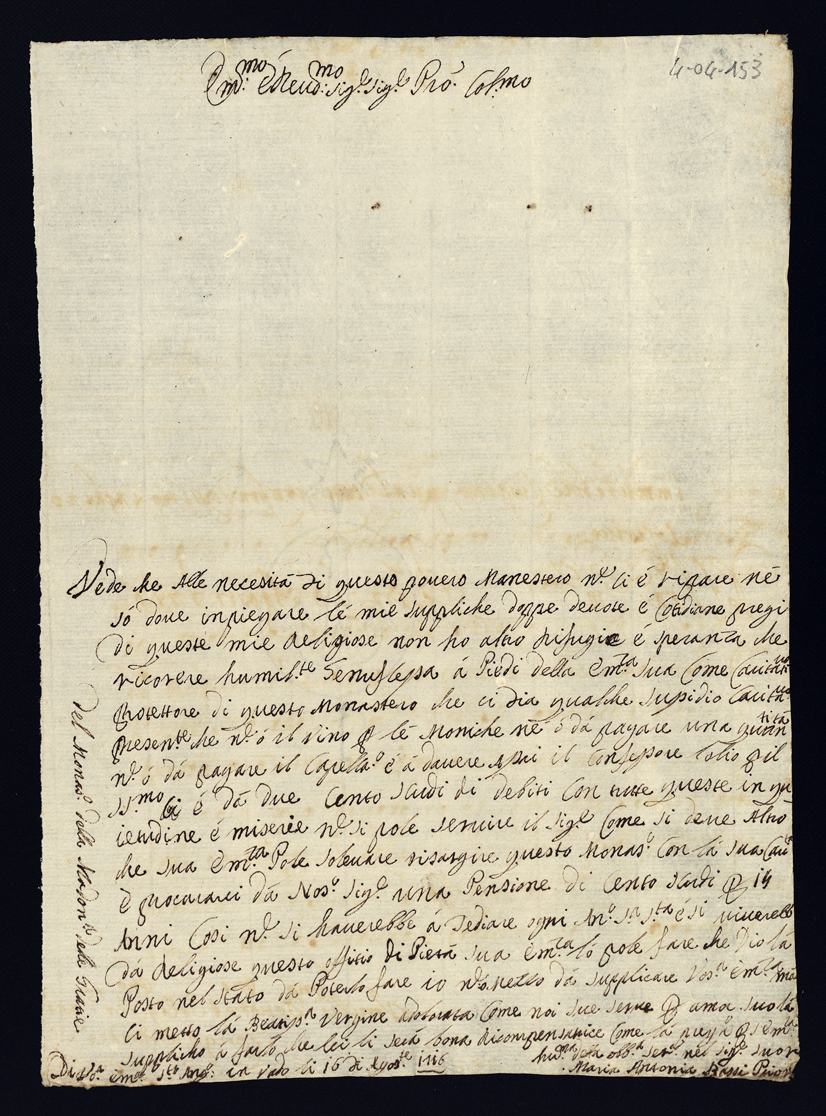 4-04-153
Em:mo é Reud:mo Sig.r Sig.r Pro. Col:mo
Vede che Alle necesità di questo povero Manestero n.o ci é ripare né
só dove inpiegare lé mie suppliche doppe devote é Cotidiane pregi
di queste mie Religiose non ho altro Rifugie é speranza che
ricorere humil.te Genuflessa á Piedi della Em.za sua Come Carita
Protettore di questo Monastero che ci dia qualche supidio Carita
presente che n.o ó il vino p lé Moniche né ó dá pagare una quan
tità
n.o ó dá pagare il Capella.o é á davere il Confessore l'olio p il
SS.mo Ci é dá due Cento scudi di debiti Con tutte queste inqu
ietudine é miserie n.o si pole servire il Sig.e Come si deve Altro
che sua Em.za Pole solevare risurgire questo Monas.o Con lá sua Car
é procurarci dá Nos.o Sig.e una Pensione di Cento scudi p
Anni Cosi n.o si haverebbe á Tediare ogni An.o é si viverebb
dá Religiose questo offitio di Pietà sua Em.za ló pole fare che Dio lá
Posto nel stato dá Poterlo fare io n.o dá supplicare Vos.a Em.za má
Ci metto lá Beatiss.a Vergine adolorata Come noi sue serve p amor suo lá
supplicho á farlo che lei li será bona Ricompensatrice Come lá
Di Vo.a Em.za S.to Ang.o in Vado li 16 di Agos.te 1716
ser.a nel Sig.e Suor
Maria Antonia Priora
del Monas.o della Madon.a dele Gratie